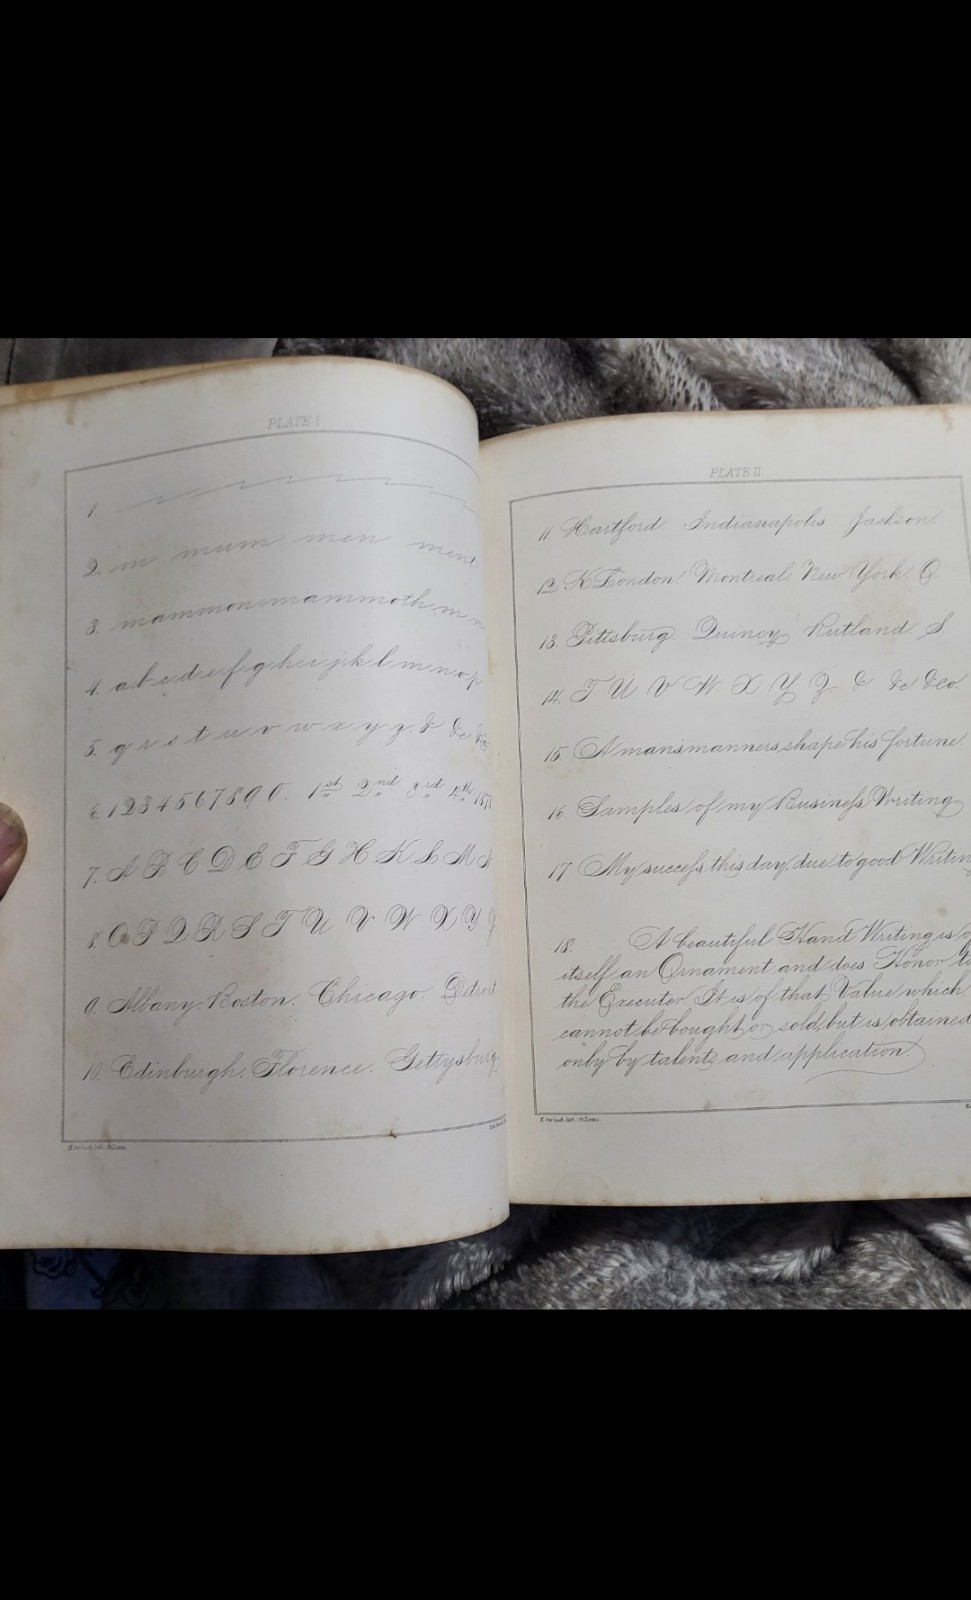 PLATE I
1.
2. m mum men ment
3. mammon mammoth m
4. a b c d e f g h i j k l m n o p
5. q r s t u v w x y z. & &c
6. 1 2 3 4 5 6 7 8 9 0. 1st 2nd 3rd 4th
7. A B C D E F G H K L M
8. O P Q R S T U V W X Y
9. Albany. Boston. Chicago. Detroit
10. Edinburgh. Florence. Gettysburg
PLATE II
11. Hartford Indianapolis Jackson.
12. K London. Montreal. New York. O
13. Pittsburg. Quincy. Rutland. S.
14. T U V W X Y Z. & &c &co.
15. A mans manners shape his fortune.
16 Samples of my Business Writing
17. My success this day, due to good Writin
18. A beautiful Hand Writing is o
itself an Ornament and does Honor to
the Executer. It is of that Value which
cannot be bought or sold, but is obtained
only by talent and application.